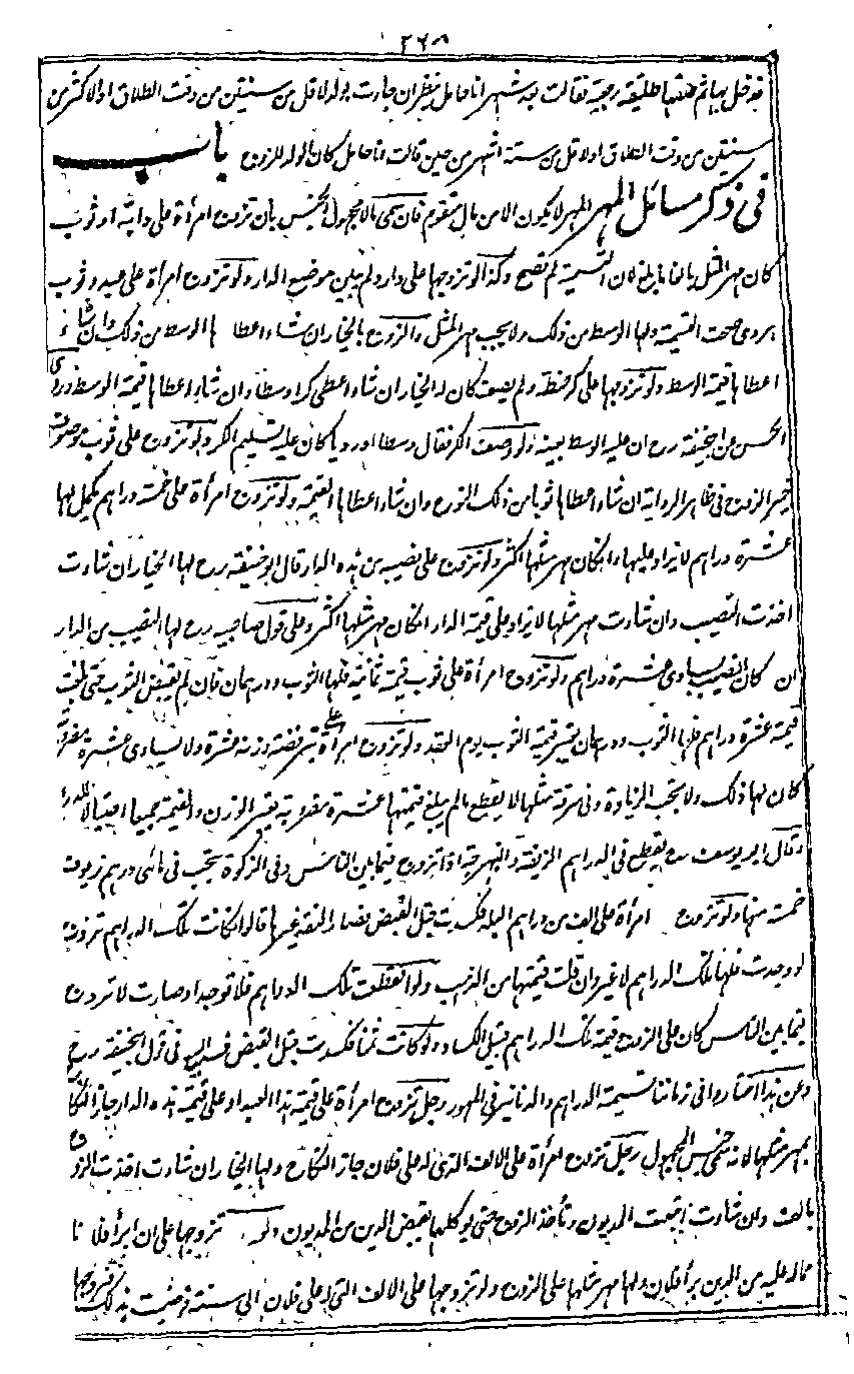 ٢٦٨
فدخل بها ثم طلقها طليقة رجعية فقالت بعد شهر انا حامل ينظر ان جاءت بولد لاقل من سنتين من وقت الطلاق او لاكثر من
سنتين من وقت الطلاق او لاقل من ستة اشهر من حين قالت انا حامل كان الولد للزوج باب
فى ذكر مسائل المهر المهر لا يكون الا من مال متقوم فان سمى مالا مجهول الجنس بان تزوج امرأة على دابة او ثوب
كان مهر المثل بالغا ما بلغ لان التسمية لم تصح وكذا لو تزوجها على دار ولم يبين موضع الدار ولو تزوج امرأة على عبد وثوب
هروى صحت التسمية ولها الوسط من ذلك ولا يجب مهر المثل والزوج بالخيار ان شاء اعطا ها الوسط من ذلك وان شاء
اعطا ها قيمة الوسط ولو تزوجها على كر حنطة ولم يصف كان له الخيار ان شاء اعطى كرا وسطا وان شاء اعطا ها قيمة الوسط وروى
الحسن عن ابيحنيفة رح ان عليه الوسط بعينه ولو وصف الكر فقال وسطا او رديا كان عليه تسليم الكر ولو تزوج على ثوب موصوف
خير الزوج فى ظاهر الرواية ان شاء اعطا ها ثوبا من ذلك النوع وان شاء اعطا ها القيمة ولو تزوج امرأة على خمسة دراهم يكمل لها
عشرة دراهم لا يزاد عليها وان كان مهر مثلها اكثر ولو تزوج على نصيبه من هذه الدار قال ابو حنيفة رح لها الخيار ان شاءت
اخذت النصيب وان شاءت مهر مثلها لا يزاد على قيمة الدار ان كان مهر مثلها اكثر وعلى قول صاحبيه رح لها النصيب من الدار
ان كان النصيب يساوى عشرة دراهم ولو تزوج امرأة على ثوب قيمته ثمانية فلها الثوب ودرهمان فان لم تقبض الثوب حتى بلغت
قيمته عشرة دراهم فلها الثوب ودرهمان يعتبر قيمة الثوب يوم العقد ولو تزوج امرأة على تبر فضة وزنه عشرة ولا يساوى عشرة مضروبة
كان لها ذلك ولا يجب الزيادة وفى سرقة مثلها لا يقطع ما لم يبلغ قيمتها عشرة مضروبة يعتبر الوزن والقيمة جميعا احتيالا للدرء
وقال ابو يوسف رح يقطع فى الدراهم الزيفة والنبهرجة اذا تروج فيما بين الناس وفى الزكوة يجب فى مائتى درهم زيوف
خمسة منها ولو تزوج امرأة على الف من دراهم البلد فكسدت قبل القبض فصار النقد غيرها قالوا ان كانت تلك الدراهم تروج
لو وجدت فلها تلك الدراهم لا غير وان قلت قيمتها من الذهب ولو انقطعت تلك الدراهم فلا توجد او صارت لا تروج
فيما بين الناس كان على الزوج قيمة تلك الدراهم قبل الكساد ولو كانت ثمنا فكسدت قبل القبض فسد البيع فى قول ابيحنيفة رح
وعن هذا اختاروا فى زماننا تسمية الدراهم والدنانير فى المهور رجل تزوج امرأة على قيمة هذا العبد او على قيمة هذه الدار جاز النكاح
بمهر مثلها لانه سمى جنس المجهول رجل تزوج امرأة على الالف الذى له على فلان جاز النكاح ولها الخيار ان شاءت اخذت الزوج
بالف وان شاءت اتبعت المديون وتأخذ الزوج حتى يوكلها بقبض الدين من المديون ولو تزوجها على ان ابرأ فلانا
مما له عليه من الدين برأ فلان ولها مهر مثلها على الزوج ولو تزوجها على الالف التى له على فلان الى سنة فرضيت بذلك